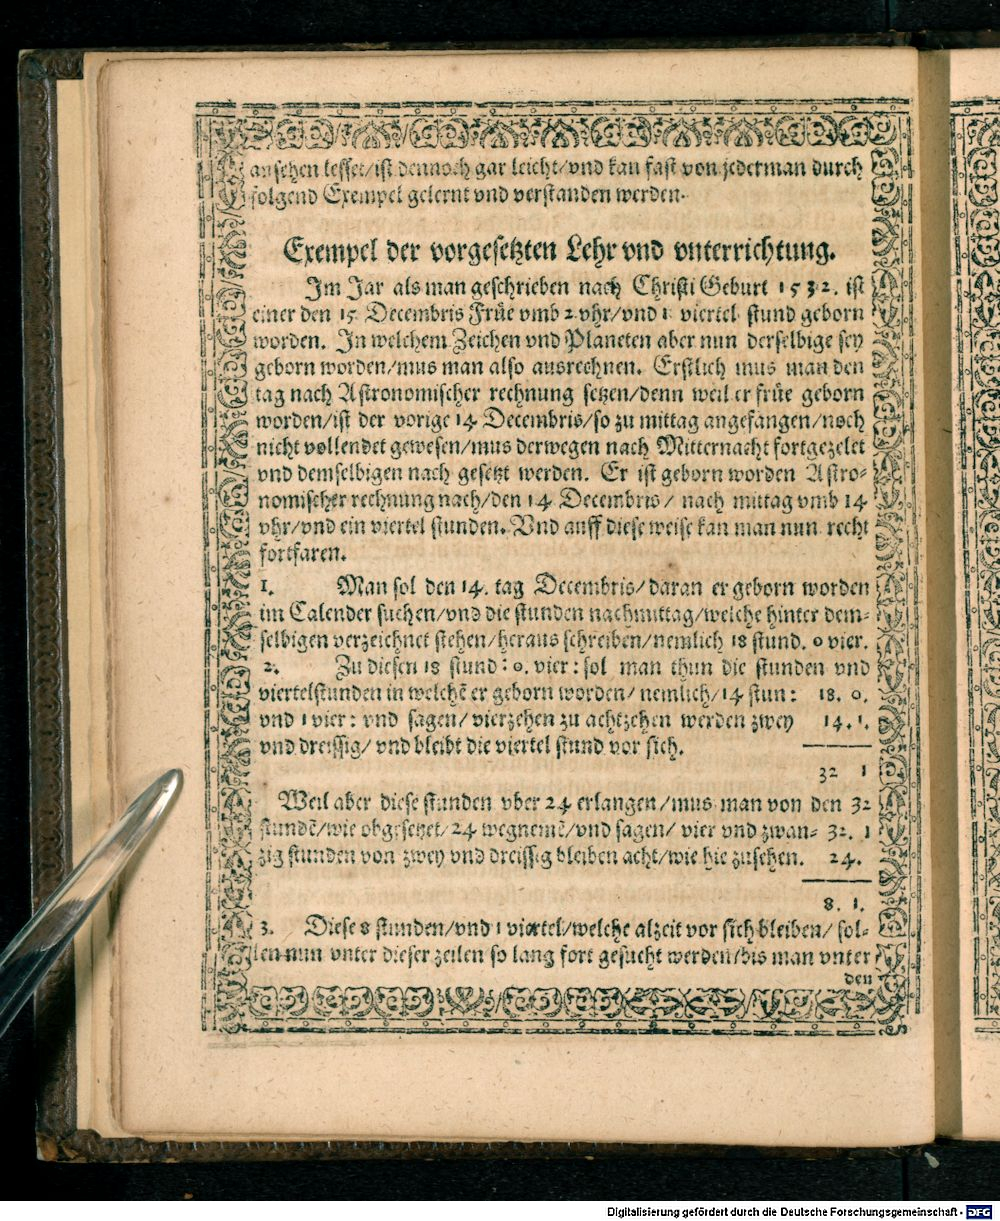 ansehen lesset/ist dennoch gar leicht/vnd kan fast von jederman durch
folgend Exempel gelernt vnd verstanden werden.
Exempel der vorgesetzten Lehr vnd vnterrichtung.
Im Jar als man geschrieben nach Christi Geburt 1532. ist
einer den 15 Decembris Früe vmb 2 vhr/vnd 1 viertel stund geborn
worden. In welchem Zeichen vnd Planeten aber nun derselbige sey
geborn worden/mus man also ausrechnen. Erstlich mus man den
tag nach Astronomischer rechnung setzen/denn weil er früe geborn
worden/ist der vorige 14 Decembris/so zu mittag angefangen/noch
nicht vollendet gewesen/mus derwegen nach Mitternacht fortgezelet
vnd demselbigen nach gesetzt werden. Er ist geborn worden Astro-
nomischer rechnung nach/den 14 Decembris/ nach mittag vmb 14
vhr/vnd ein viertel stunden. Vnd auff diese weise kan man nun recht
fortfaren.
1. Man sol den 14. tag Decembris/daran er geborn worden
im Calender suchen/vnd die stunden nachmittag/welche hinter dem-
selbigen verzeichnet stehen/heraus schreiben/nemlich 18 stund. 0 vier.
2. Zu diesen 18 stund: 0. vier: sol man thun die stunden vnd
viertelstunden in welchē er geborn worden/ nemlich/14 stun: 18. 0.
vnd 1 vier: vnd sagen/vierzehen zu achtzehen werden zwey 14. 1.
vnd dreissig/vnd bleibt die viertel stund vor sich.
32 1
Weil aber diese stunden vber 24 erlangen/mus man von den 32
stundē/wie obgesetzet/24 wegnemē/vnd sagen/ vier vnd zwan- 32. 1
zig stunden von zwey vnd dreissig bleiben acht/wie hie zusehen. 24.
8. 1.
3. Diese 8 stunden/vnd 1 viertel/welche alzeit vor sich bleiben/ sol-
len nun vnter dieser zeilen so lang fort gesucht werden/bis man vnter
den
Digitalisierung gefördert durch die Deutsche Forschungsgemeinschaft - DFG